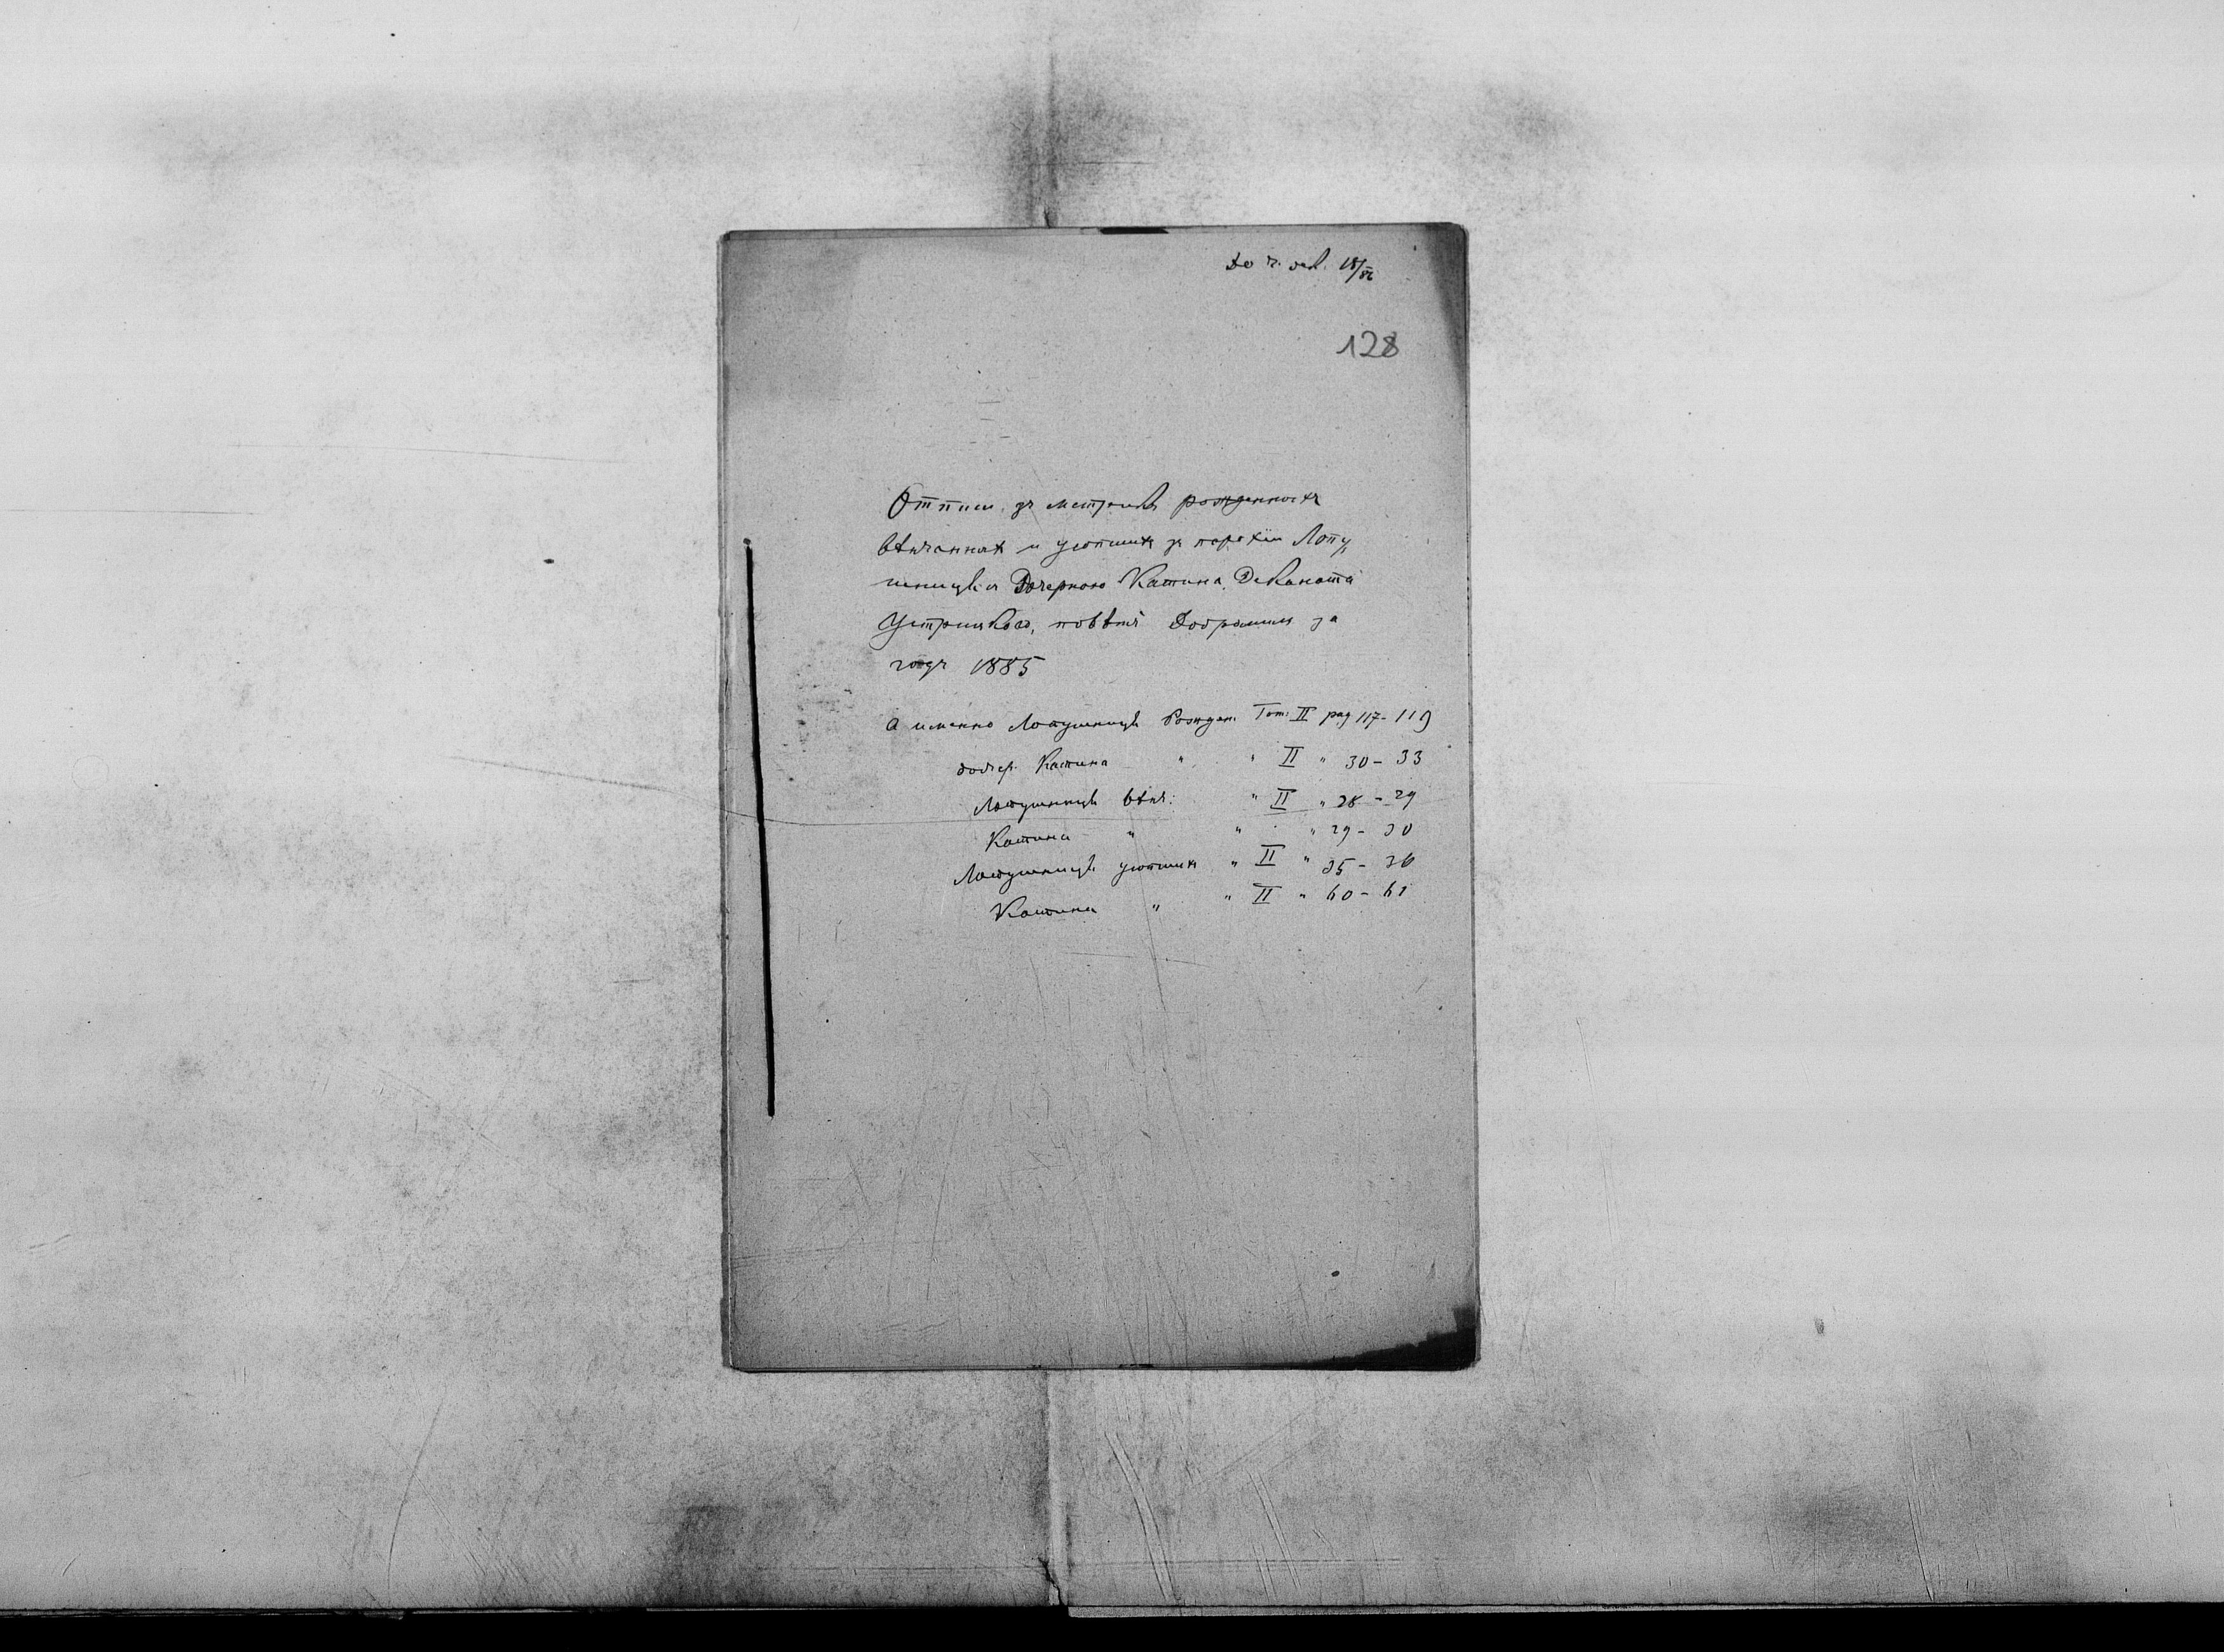 До ч. дек. 18/86
128
Отпись зъ метрикъ рожденныхъ
вѣнчанныхъ и усопшихъ зъ парохіи Лопу
шницкія Дочерного Катина Деканата
Устрицкого, повѣтъ Добромиль за
годъ 1885
а именно Лопушниця Рожден. Том. II pag 117-119
дочер. Катина " " II " 30-33
Лопушниця вѣнч. " II " 28-29
Катина " " " 29-30
Лопушниця усопших " II " 35-36
Катина " " II " 60-61